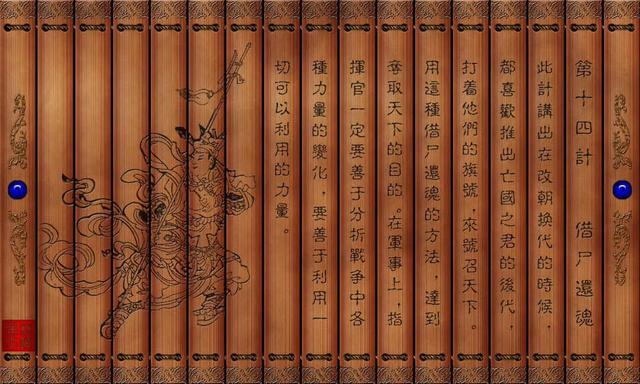 第十四計　借尸還魂
此計講出在改朝換代的時候，
都喜歡推出亡國之君的後代，
打着他們的旗號，來號召天下。
用這種借尸還魂的方法，達到
奪取天下的目的。在軍事上，指
揮官一定要善于分折戰爭中各
種力量的變化，要善于利用一
切可以利用的力量。